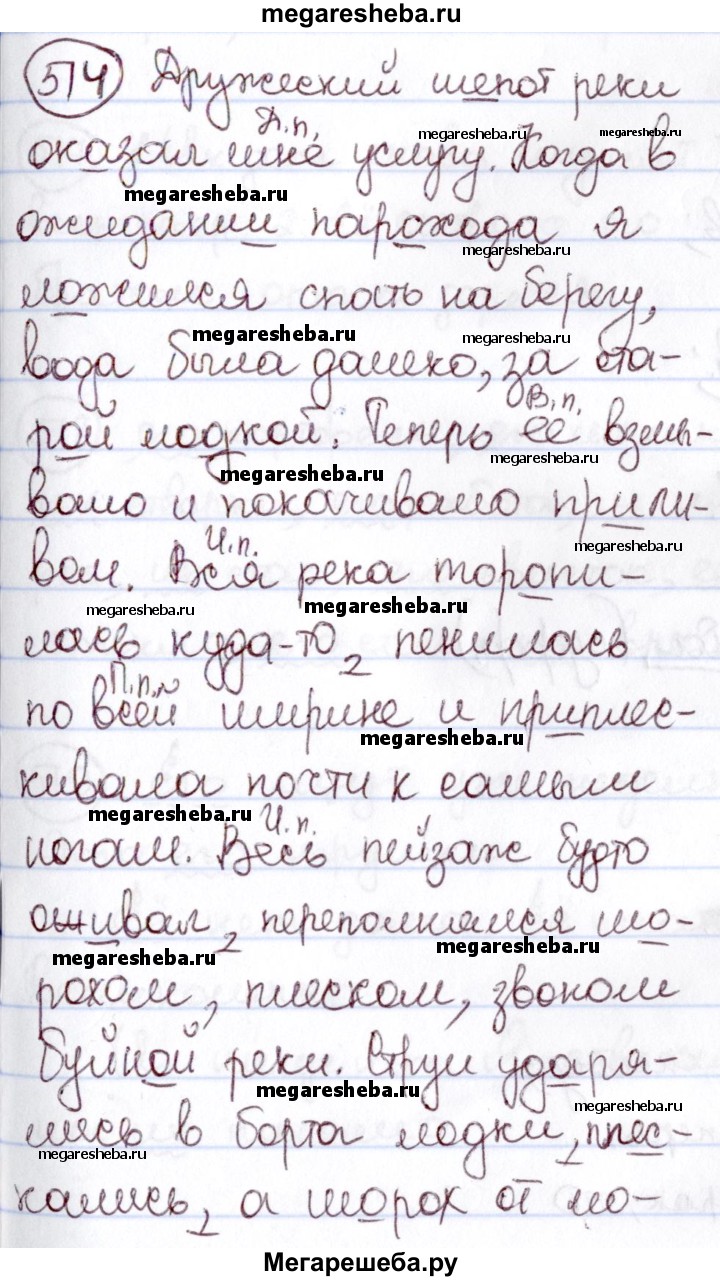 megaresheba.ru
514 Дружеский шепот реки
Д.п.
оказал мне услугу. Когда в
megaresheba.ru
megaresheba.ru
megaresheba.ru
ожидании парохода я
megaresheba.ru
ложился спать на берегу,
megaresheba.ru
вода была далеко, за ста-
В.п.
рой лодкой. Теперь ее взмы-
megaresheba.ru
megaresheba.ru
вало и покачивало прили-
megaresheba.ru
И.п.
вом. Вся река торопи-
megaresheba.ru
megaresheba.ru
лась куда-то, пенилась
П.п.
по всей ширине и приплес-
megaresheba.ru
кивала почти к самым
megaresheba.ru
И.п.
ногам. Весь пейзаж будто
оживал, переполнялся шо-
megaresheba.ru
megaresheba.ru
рохом, плеском, звоном
буйной реки. Струи ударя-
megaresheba.ru
megaresheba.ru
лись в борта лодки, плес-
megaresheba.ru
кались, а шорох от ло-
Мегарешеба.ру